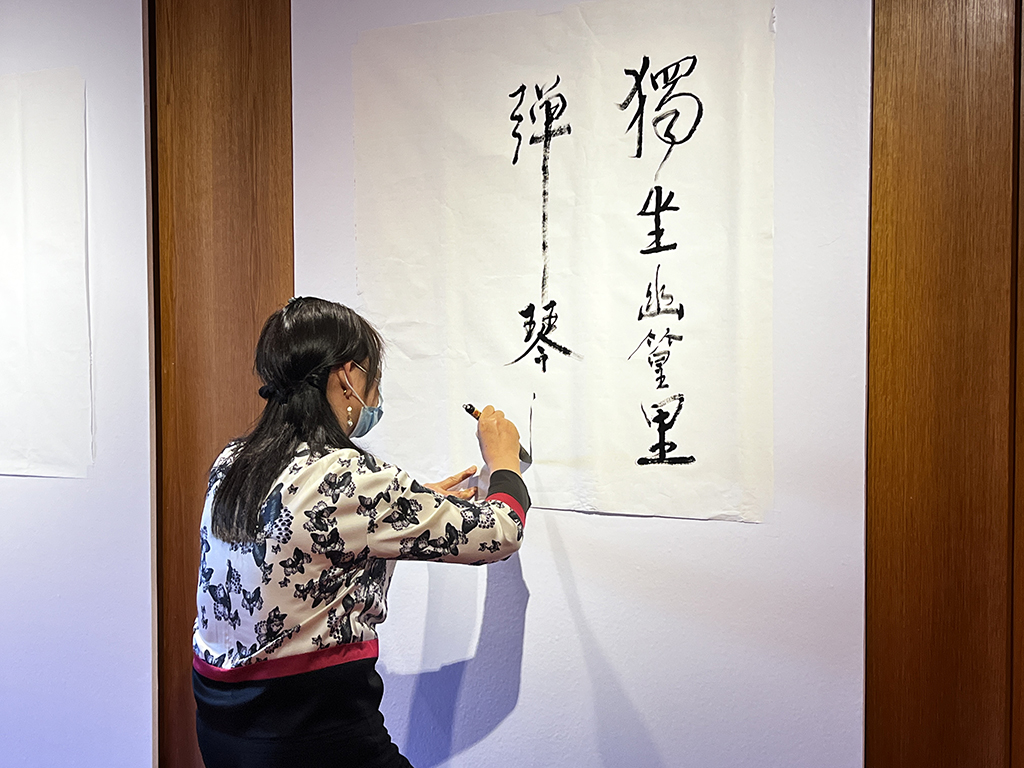 獨坐幽篁里
弹琴